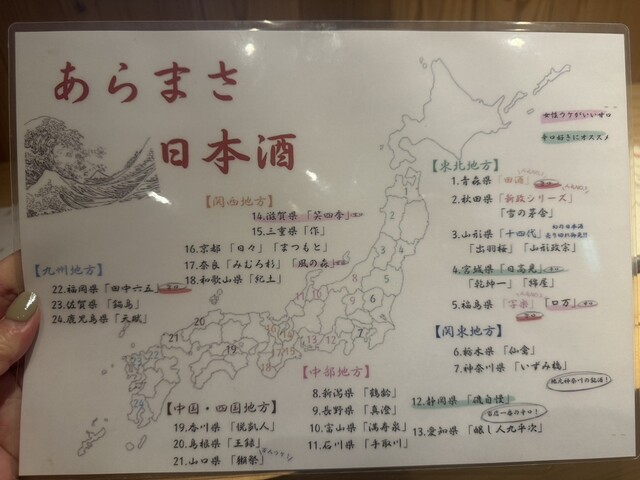 あらまさ
日本酒
女性ウケがいい甘口
辛口好きにオススメ
【東北地方】
1.青森県「田酒」
2.秋田県「新政シリーズ」
「雪の茅舎」
3.山形県「十四代」
「出羽桜」「山形政宗」
4.宮城県「日高見」
「乾坤一」「綿屋」
5.福島県「写楽」「ロ万」
【関西地方】
14.滋賀県「笑四季」
15.三重県「作」
16.京都「日々」「まつもと」
17.奈良「みむろ杉」「風の森」
18.和歌山県「紀土」
【九州地方】
22.福岡県「田中六五」
23.佐賀県「鍋島」
24.鹿児島県「天賦」
【関東地方】
6.栃木県「仙禽」
7.神奈川県「いづみ橋」
地元神奈川の銘酒！
【中部地方】
8.新潟県「鶴齢」
9.長野県「真澄」
10.富山県「満寿泉」
11.石川県「手取川」
12.静岡県「磯自慢」
当店一番の辛口！
13.愛知県「醸し人九平次」
【中国・四国地方】
19.香川県「悦凱人」
20.島根県「王祿」
21.山口県「獺祭」